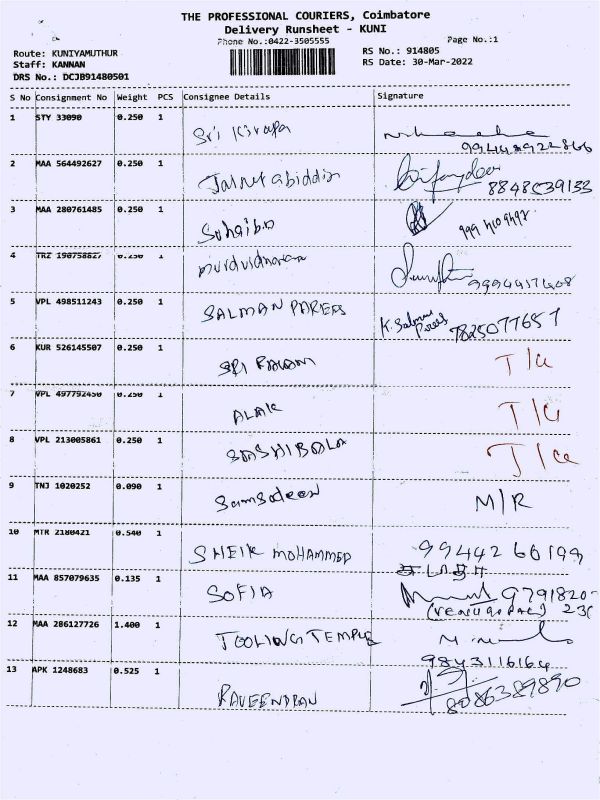 THE PROFESSIONAL COURIERS, Coimbatore
Delivery Runsheet - KUNI
Phone No.:0422-3505555 Page No.:1
Route: KUNIYAMUTHUR RS No.: 914805
Staff: KANNAN RS Date: 30-Mar-2022
DRS No.: DCJB91480501
S No Consignment No Weight PCS Consignee Details Signature
1 STY 33090 0.250 1 Sri Kirapa
2 MAA 564492627 0.250 1
8848039133
3 MAA 280761485 0.250 1 Suhaiba
4 TRZ 190758827 0.250 1
9994917608
5 VPL 498511243 0.250 1 SALMAN PAREES K. Salman Parees 7825077657
6 KUR 526145507 0.250 1 SRI
7 VPL 497792450 0.250 1 ALAK
8 VPL 213005861 0.250 1 SASHIBALA
9 TNJ 1020252 0.090 1 Samsadeen M/R
10 MTR 2180421 0.540 1 SHEIK MOHAMMED 9944260199
11 MAA 857079635 0.135 1 SOFIA 9791820-
(VENUGOPAL)
12 MAA 286127726 1.400 1 TOOLING TEMPLE
9843116164
13 APK 1248683 0.525 1 RAVEENDRAN 8086389890